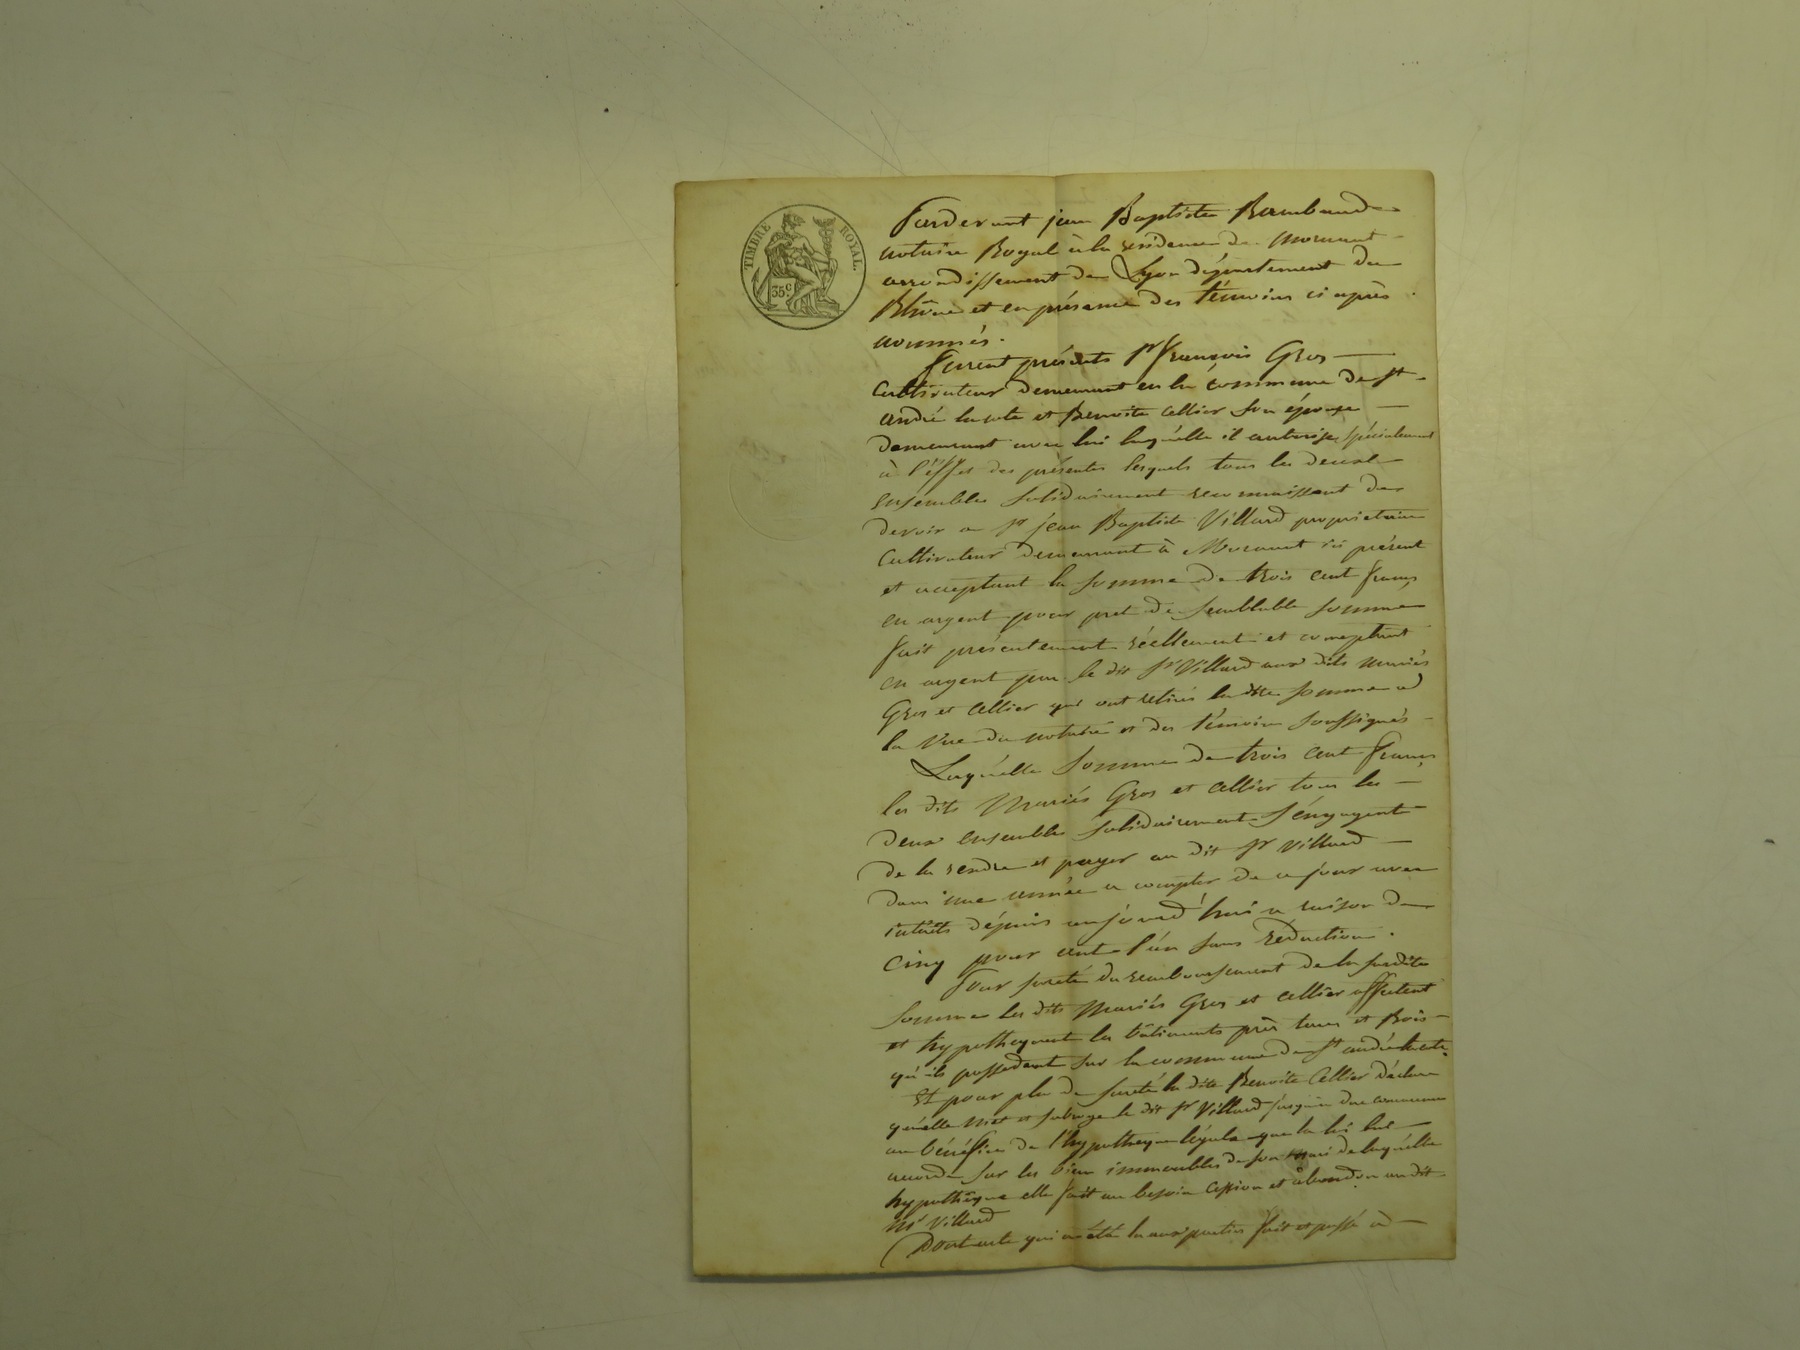 TIMBRE ROYAL.
35c
Pardevant jean Baptiste Rambaud
notaire Royal à la residence de Mornant
arrondissement de Lyon département du
Rhône et en présence des témoins ci après
nommés.
furent présents Sr françois Gros
Cultivateur demeurant en la commune de St
andré la cote et Benoite Cellier son épouse
demeurant avec lui laquelle il autorise spécialement
à l'éffet des présentes lesquels tous les deux
ensembles solidairement reconnaissent de
devoir a Sr jean Baptiste Villard propriétaire
Cultivateur demeurant à Mornant ici présent
et acceptant la somme de trois cent francs
en argent pour pret de semblable somme
fait présentement réellement et comptant
en argent par le dit Sr Villard aux dits mariés
Gros et Cellier qui ont retirés la dite somme a
la vue du notaire et des témoins soussignés
Laquelle somme de trois cent francs
les dits Mariés Gros et Cellier tous les
deux ensembles solidairement s'éngagent
de la rendre et payer au dit Sr Villard
dans une année a compter de ce jour avec
intérêts dépuis aujourd'hui a raison de
Cinq pour cent l'un sans réduction.
Pour sureté du remboursement de la susdite
somme les dits Mariés Gros et Cellier affectent
et hypothequent les bâtiments près terres et Bois
qu'ils possedent sur la commune de St andré la cote.
Et pour plus de sureté la dite Benoite Cellier déclare
qu'elle met et subroge le dit Sr Villard jusqu'a due concurrence
au bénéfice de l'hypotheque légale que la loi lui
accorde sur les bien immeubles de son mari de laquelle
hypothèque elle fait au besoin Cession et abandon au dit
Mr Villard
Dont acte qui a été lu aux parties fait et passé à